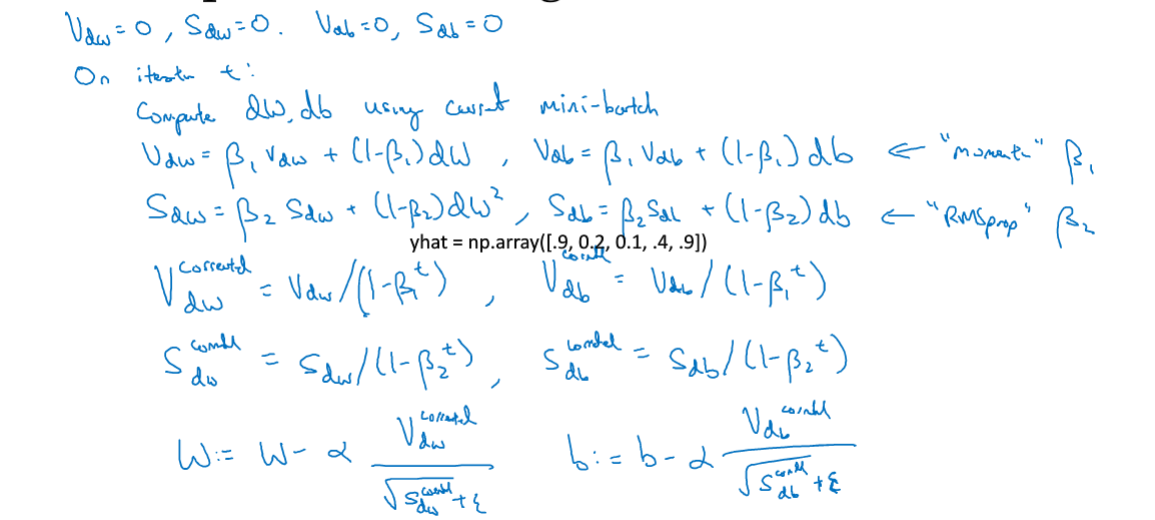 V_dw = 0, S_dw = 0. V_db = 0, S_db = 0
On iteration t:
Compute dW, db using current mini-batch
V_dw = β₁ V_dw + (1-β₁) dW , V_db = β₁ V_db + (1-β₁) db ← "moment" β₁
S_dw = β₂ S_dw + (1-β₂) dW² , S_db = β₂ S_db + (1-β₂) db ← "RMSprop" β₂
yhat = np.array([.9, 0.2, 0.1, .4, .9])
V_dw^corrected = V_dw / (1-β₁^t) , V_db^corrected = V_db / (1-β₁^t)
S_dw^corrected = S_dw / (1-β₂^t) , S_db^corrected = S_db / (1-β₂^t)
W := W - α V_dw^corrected / (√S_dw^corrected + ε) b := b - α V_db^corrected / (√S_db^corrected + ε)